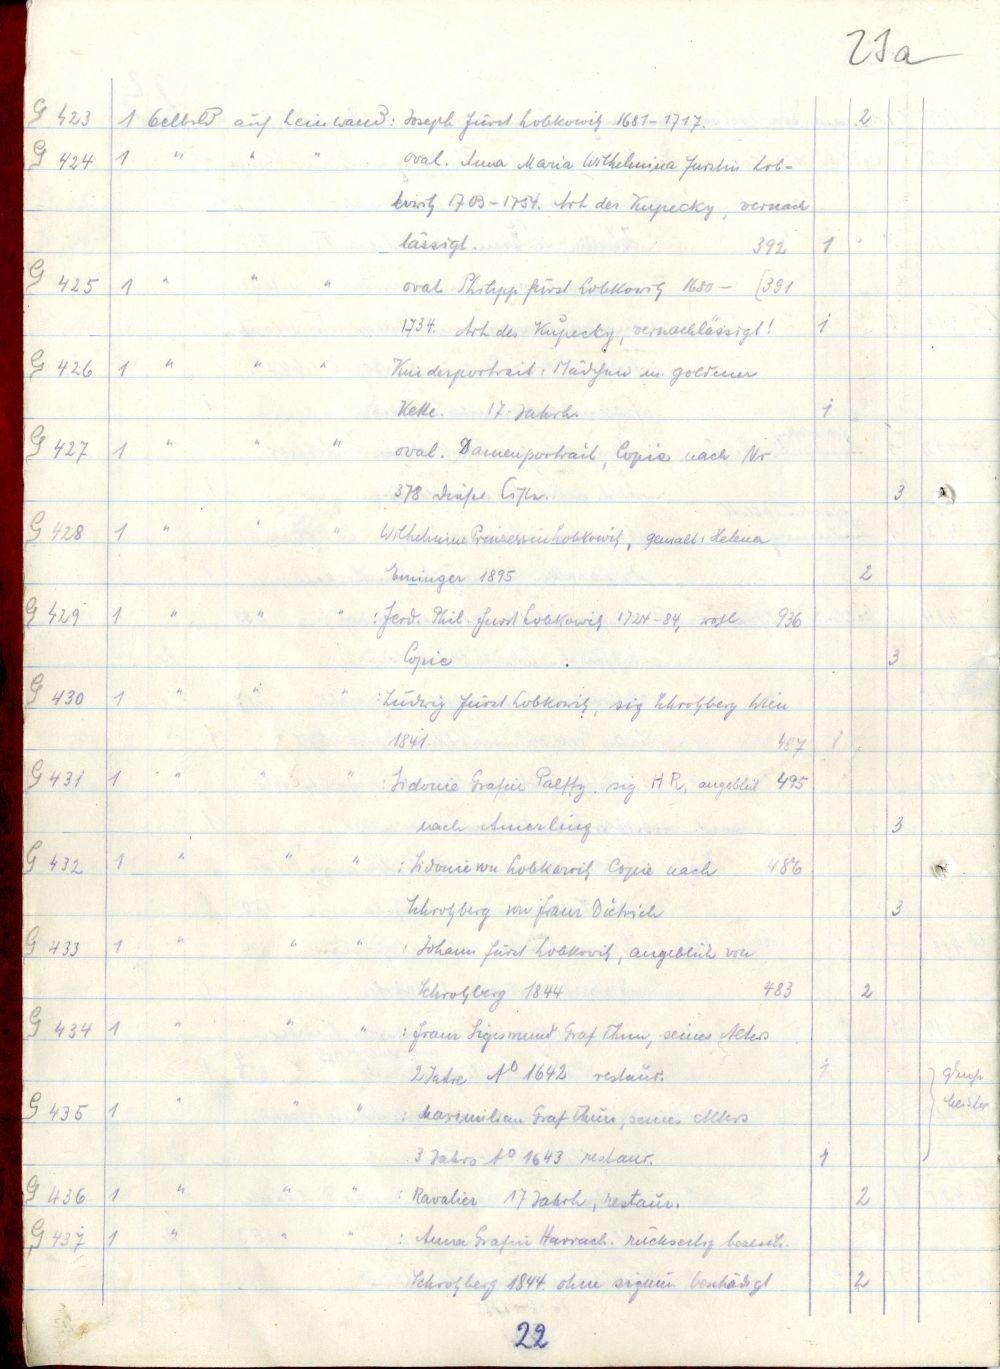 21a
G 423 1 Oelbild auf Leinwand: Joseph Fürst Lobkowitz 1681-1717. 2
G 424 1 " " " oval. Anna Maria Wilhelmina Fürstin Lob-
kowitz 1703-1754. Art des Kupecky, vernach
lässigt. 392 1
G 425 1 " " " oval Philipp Fürst Lobkowitz 1680- [391
1734. Art des Kupecky, vernachlässigt! 1
G 426 1 " " " Kinderportrait: Mädchen m. goldener
Kette. 17. Jahrh. 1
G 427 1 " " " oval. Damenportrait, Copie nach Nr
378 dieser Liste. 3
G 428 1 " " " Wilhelmine Prinzessin Lobkowitz, gemalt: Helena
Eminger 1895 2
G 429 1 " " " : Ferd. Phil. Fürst Lobkowitz 1724-84, wohl 936
Copie 3
G 430 1 " " " : Ludwig Fürst Lobkowitz, sig Schrotzberg Wien
1841. 487 1
G 431 1 " " " : Sidonie Gräfin Palffy. sig HR, angeblich 495
nach Amerling 3
G 432 1 " " " : Sidonie von Lobkowitz Copie nach 486
Schrotzberg von Franz Dietrich 3
G 433 1 " " " : Johann Fürst Lobkowitz, angeblich von
Schrotzberg 1844 483 2
G 434 1 " " " : Franz Sigismund Graf Thun, seines Alters
2 Jahre Aº 1642 restaur. 1
G 435 1 " " " : Maximilian Graf Thun, seines Alters
3 Jahrs Aº 1643 restaur. 1
G 436 1 " " " : Kavalier 17 Jahrh, restaur. 2
G 437 1 " " " : Anna Gräfin Harrach. rückseitig bezeich.
Schrotzberg 1844. ohne signum beschädigt 2
22